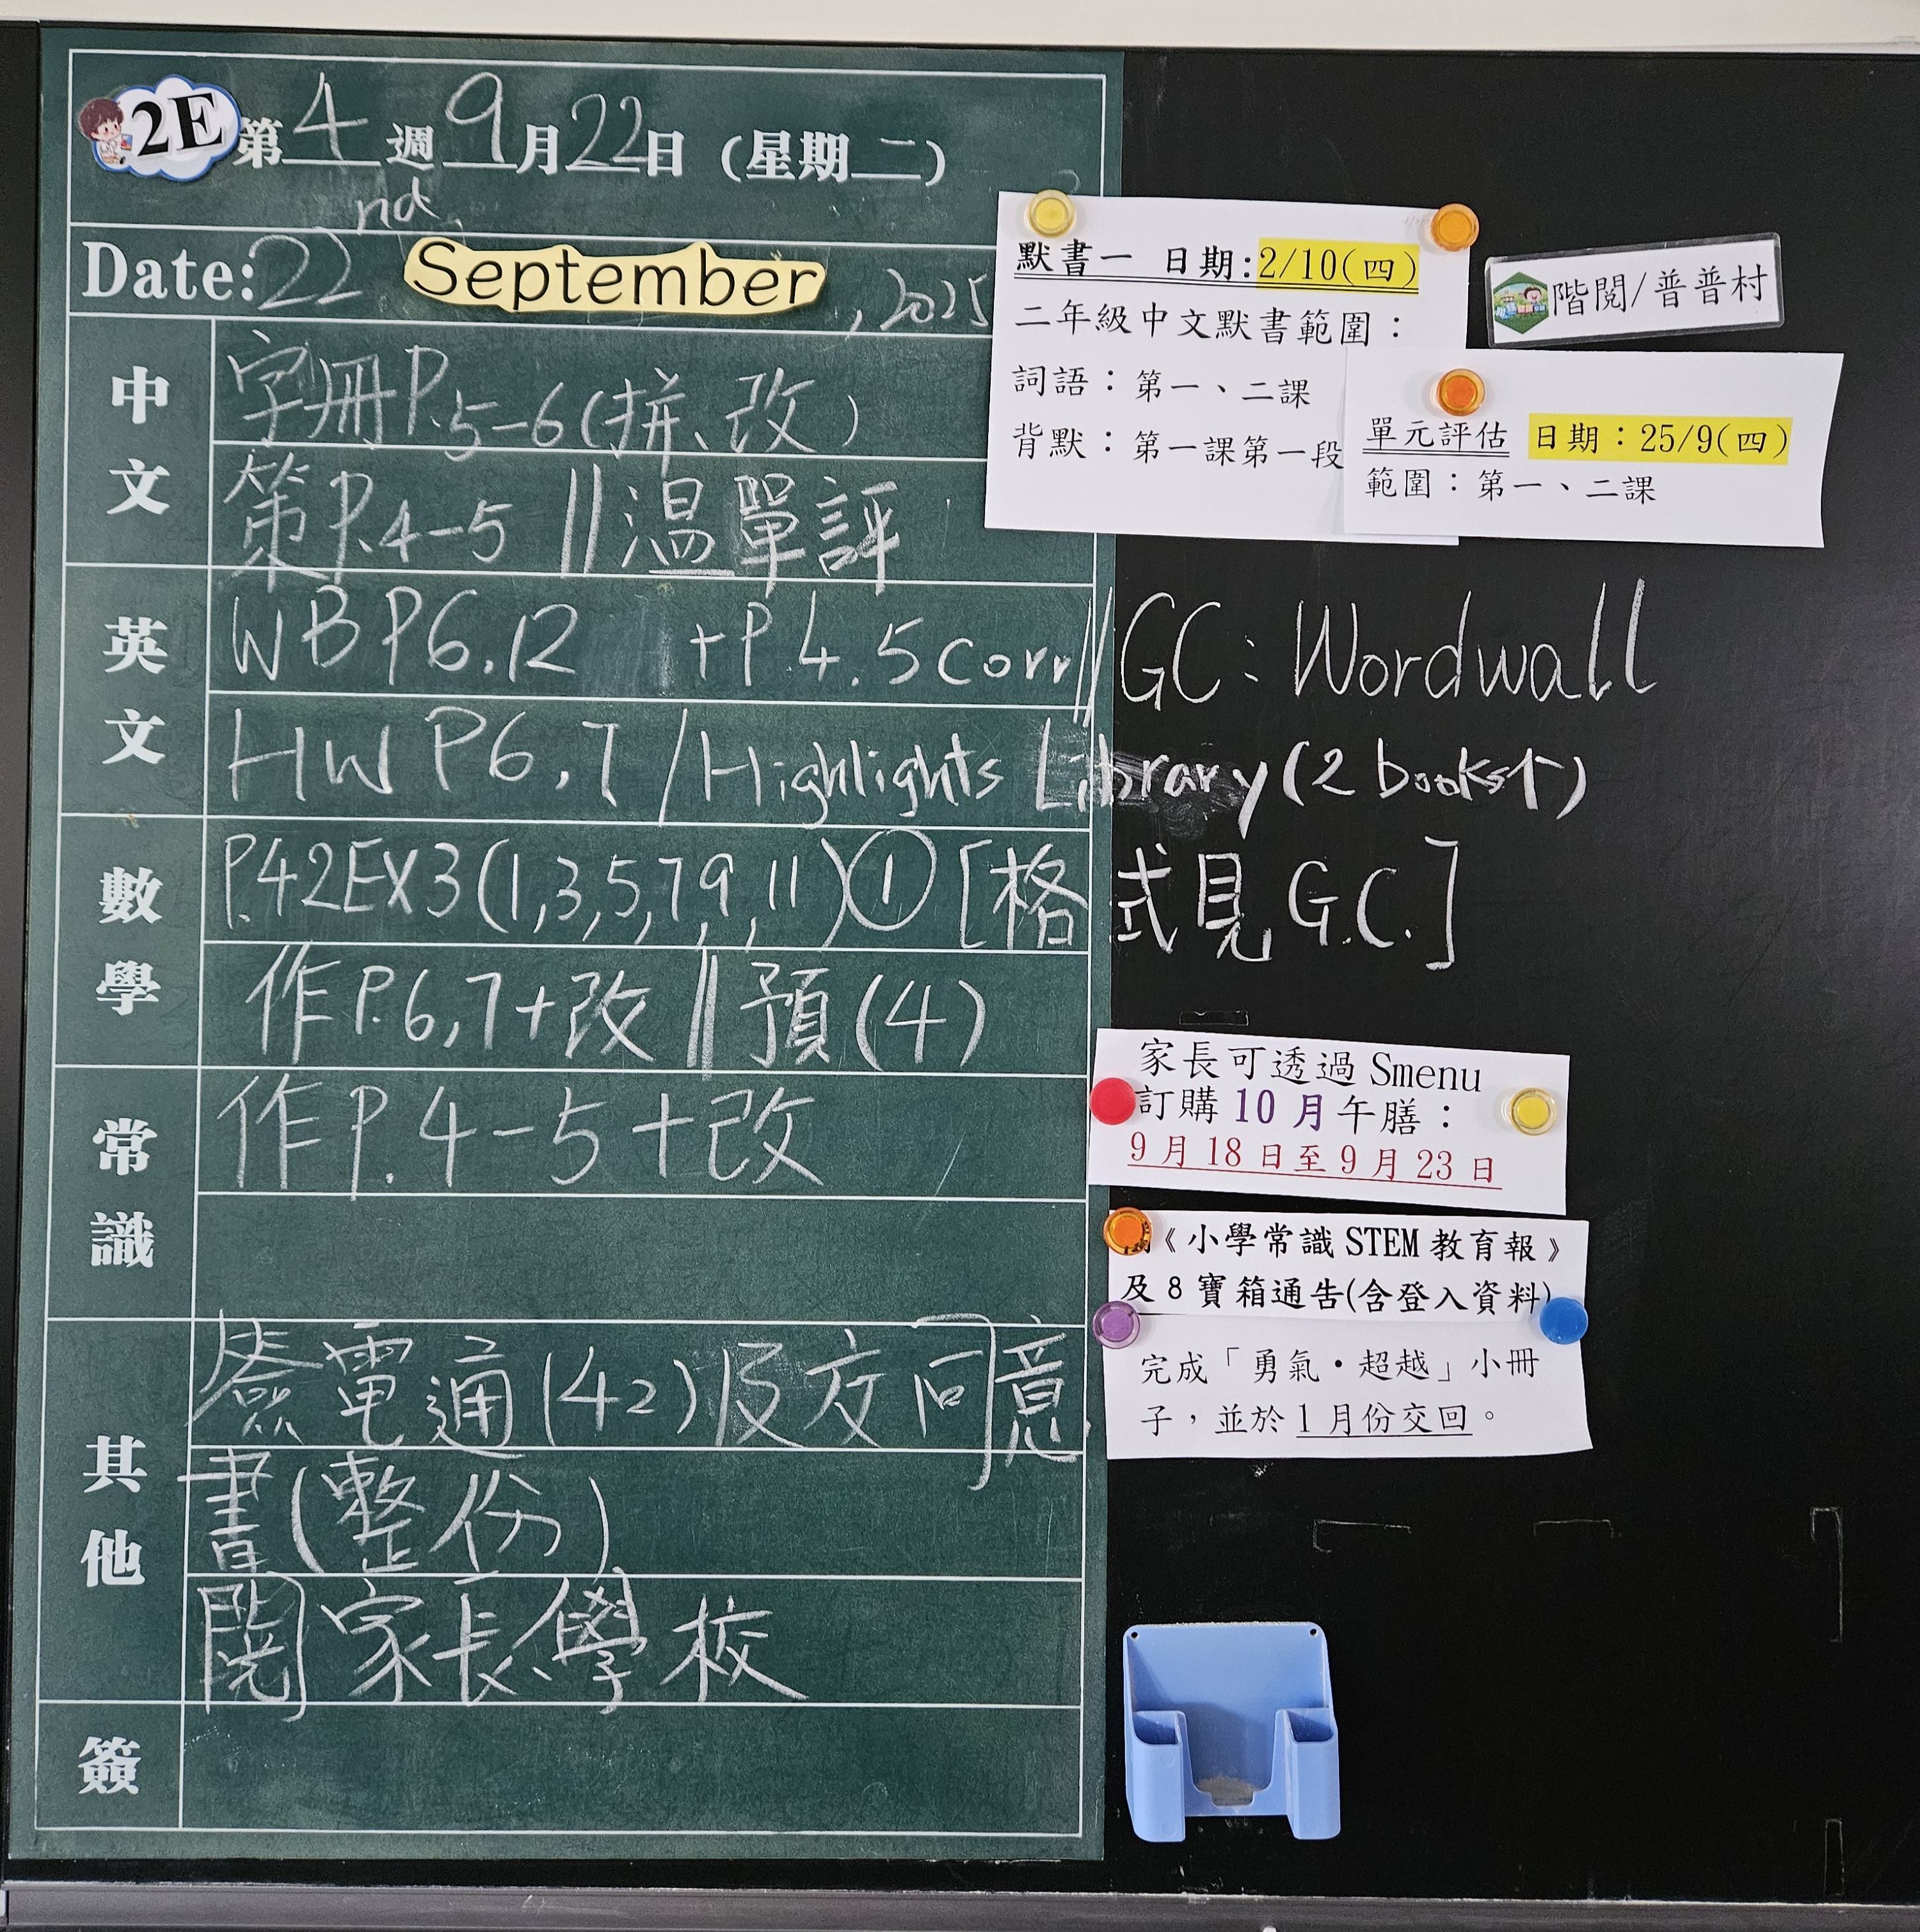 2E 第4週 9月22日 (星期二)
Date: 22nd September, 2025
中文
字冊P.5-6(拼、改)
策P.4-5 || 温單評
英文
WB P6.12 +P4.5 corr || GC: Wordwall
HW P6,7 / Highlights Library (2 books↑)
數學
P.42EX3(1,3,5,7,9,11)① [格式見G.C.]
作P.6,7+改 || 預(4)
常識
作P.4-5+改
其他
簽電通(42)及交同意
書(整份)
閱家長學校
簽
默書一 日期:2/10(四)
二年級中文默書範圍：
詞語：第一、二課
背默：第一課第一段
階閱/普普村
單元評估 日期：25/9(四)
範圍：第一、二課
家長可透過 Smenu
訂購 10 月午膳：
9 月 18 日至 9 月 23 日
《小學常識 STEM 教育報》
及 8 寶箱通告(含登入資料)
完成「勇氣•超越」小冊
子，並於 1 月份交回。